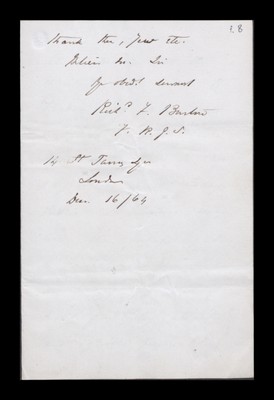 3, 8
thank them, Jew etc.
Believe me Sir
Yr obedt servant
Richd F. Burton
F. R. G. S.
14 St James Sqre
London
Dec. 16/64